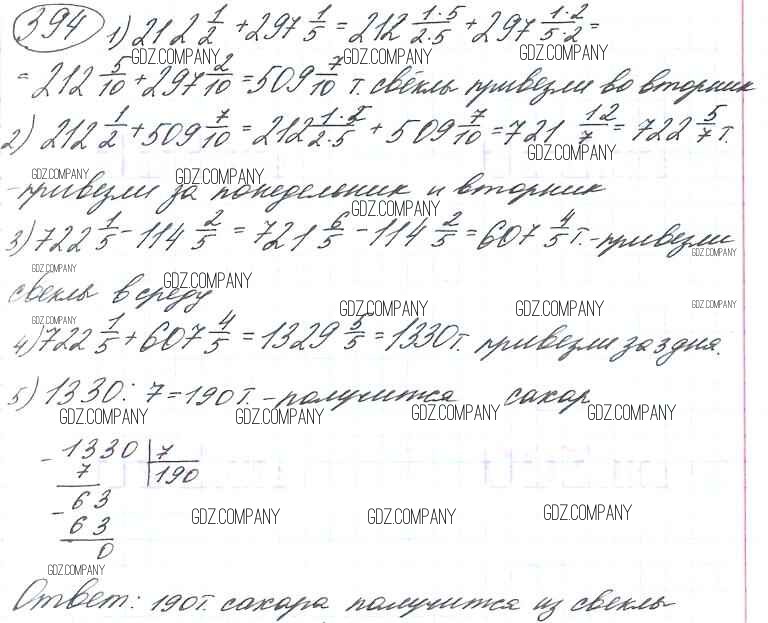 394 1) 212 1/2 + 297 1/5 = 212 1·5/2·5 + 297 1·2/5·2 =
GDZ.COMPANY GDZ.COMPANY GDZ.COMPANY
= 212 5/10 + 297 2/10 = 509 7/10 т. свёклы привезли во вторник
2) 212 1/2 + 509 7/10 = 212 1·5/2·5 + 509 7/10 = 721 12/7 = 722 5/7 т.
GDZ.COMPANY GDZ.COMPANY GDZ.COMPANY
- привезли за понедельник и вторник
GDZ.COMPANY
3) 722 1/5 - 114 2/5 = 721 6/5 - 114 2/5 = 607 4/5 т. - привезли
GDZ.COMPANY GDZ.COMPANY GDZ.COMPANY
свеклы в среду
GDZ.COMPANY GDZ.COMPANY GDZ.COMPANY GDZ.COMPANY
4) 722 1/5 + 607 4/5 = 1329 5/5 = 1330 т. привезли за 3 дня.
5) 1330 : 7 = 190 т. - получится сахар
GDZ.COMPANY GDZ.COMPANY GDZ.COMPANY GDZ.COMPANY
- 1330 | 7
7 | 190
- 63
63
GDZ.COMPANY GDZ.COMPANY GDZ.COMPANY
0
GDZ.COMPANY
Ответ: 190 т. сахара получится из свеклы